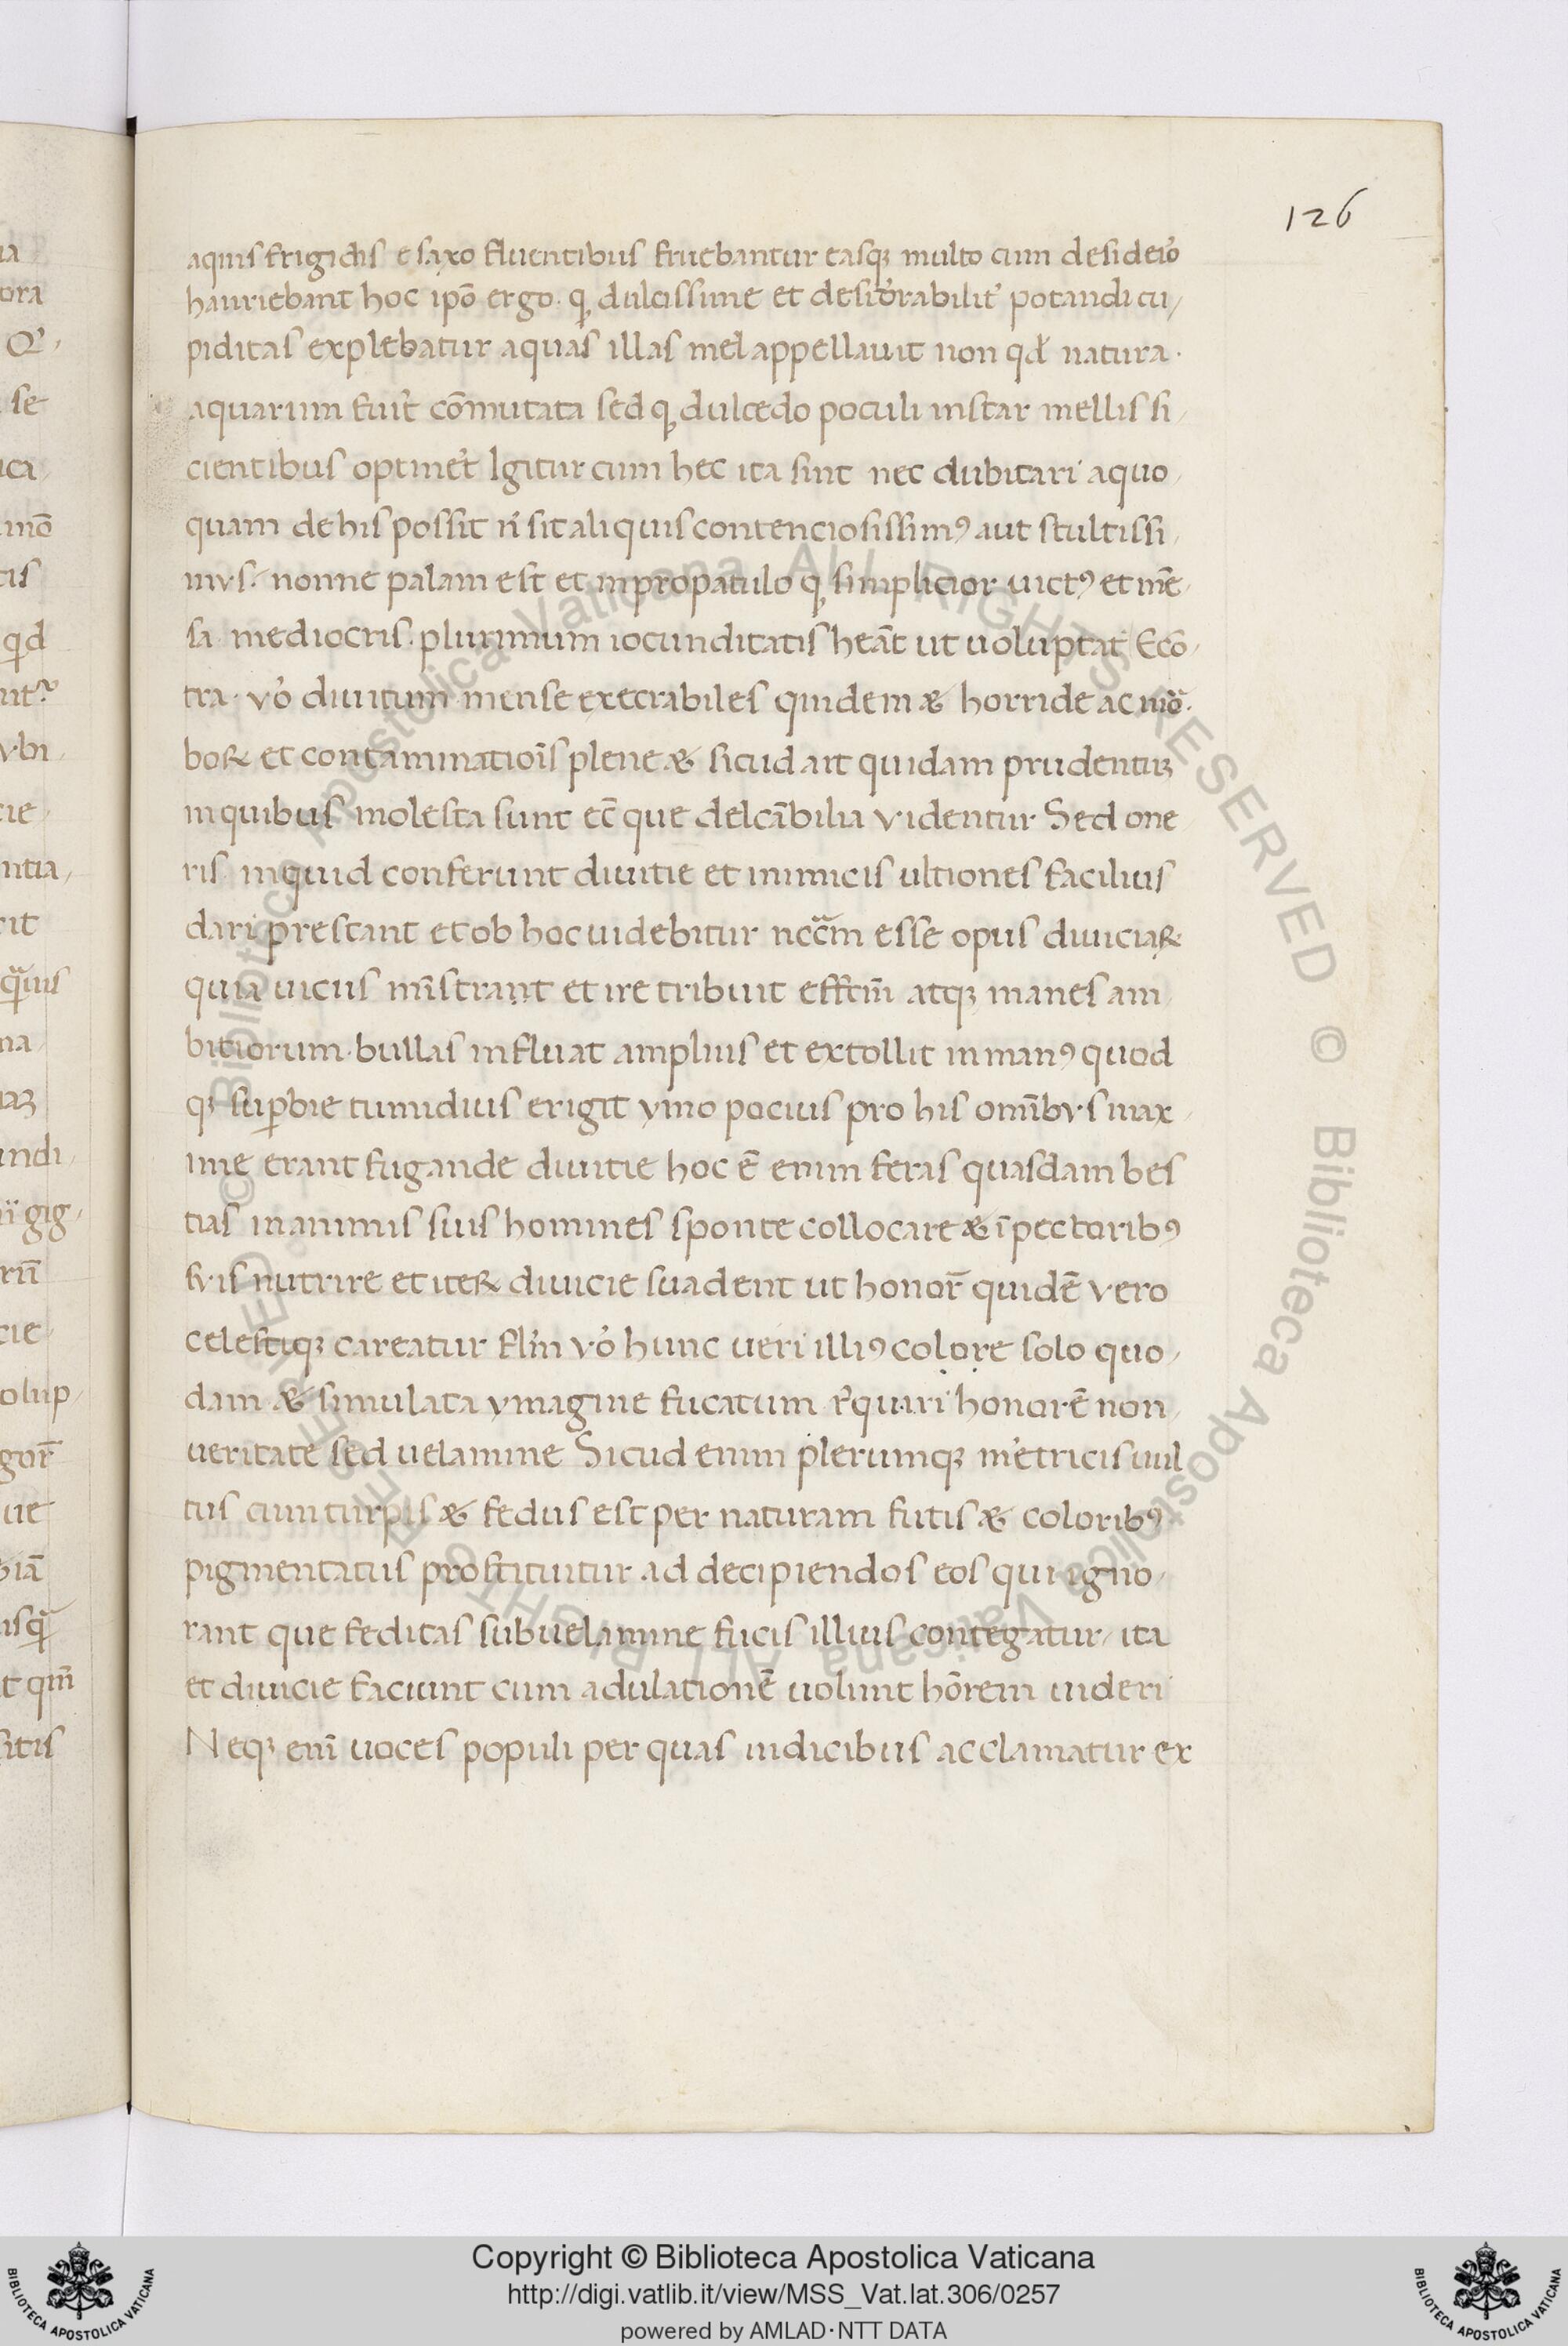 126
aquis frigidis e saxo fluentibus fruebantur easqꝫ multo cum desideio᷒
hauriebant hoc ipo᷒ ergo. qꝫ dulcissime et desid᷒rabilit᷒ potandi cu
piditas explebatur aquas illas mel appellauit non qd᷒ natura.
aquarum fuit᷒ com̄utata sed qꝫ dulcedo poculi instar mellis si
cientibus optinet᷒ Igitur cum hec ita sint nec dubitari aquo
quam de his possit ni᷒ sit aliquis contenciosissimꝰ aut stultissi
mus. nonne palam est et inpropatulo qꝫ simplicior uictꝰ et mē
sa mediocris. plurimum iocunditatis heāt ut uoluptat᷒ Ecō
tra. vo᷒ diuitum mense execrabiles quidem & horride ac mo᷒.
boꝝ et contaminatioīs plene & sicud ait quidam prudentuꝫ
inquibus molesta sunt ec̄ que delcābilia videntur Sed one
ris inquid conferunt diuitie et inimicis ultiones facilius
dari prestant et ob hoc uidebitur nccām esse opus diuiciaꝝ
quia uicus mīstrant et ire tribuit effcīm atqꝫ inanes am
bitiorum. bullas influat amplius et extollit in manꝰ quod
qꝫ suꝑbie tumidius erigit ymo pocius pro his omībus max
ime erant fugande diuitie hoc ē enim feras quasdam bes
tias in animis suis homines sponte collocare & ī pectoribꝰ
suis nutrire et iteꝝ diuicie suadent ut honor̄ quidē vero
celestiqꝫ careatur flīn vo᷒ hunc ueri illiꝰ colore solo quo
dam & simulata ymagine fucatum r᷒quari honorē non
ueritate sed uelamine Sicud enim plerumqꝫ me᷒tricis uul
tus cum turpis & fedus est per naturam futis & coloribꝰ
pigmentatus prostituitur ad decipiendos eos qui igno
rant que feditas sub uelamine fucis illius contegatur, ita
et diuicie faciunt cum adulationē uolunt hōrem uideri
Neqꝫ enī uoces populi per quas iudicibus acclamatur ex
Copyright © Biblioteca Apostolica Vaticana
http://digi.vatlib.it/view/MSS_Vat.lat.306/0257
powered by AMLAD·NTT DATA
BIBLIOTECA APOSTOLICA VATICANA
BIBLIOTECA APOSTOLICA VATICANA